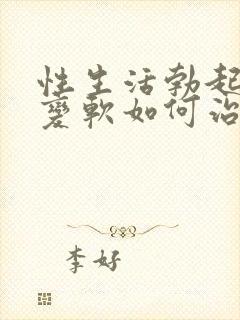 性生活勃起
变软如何治
李好